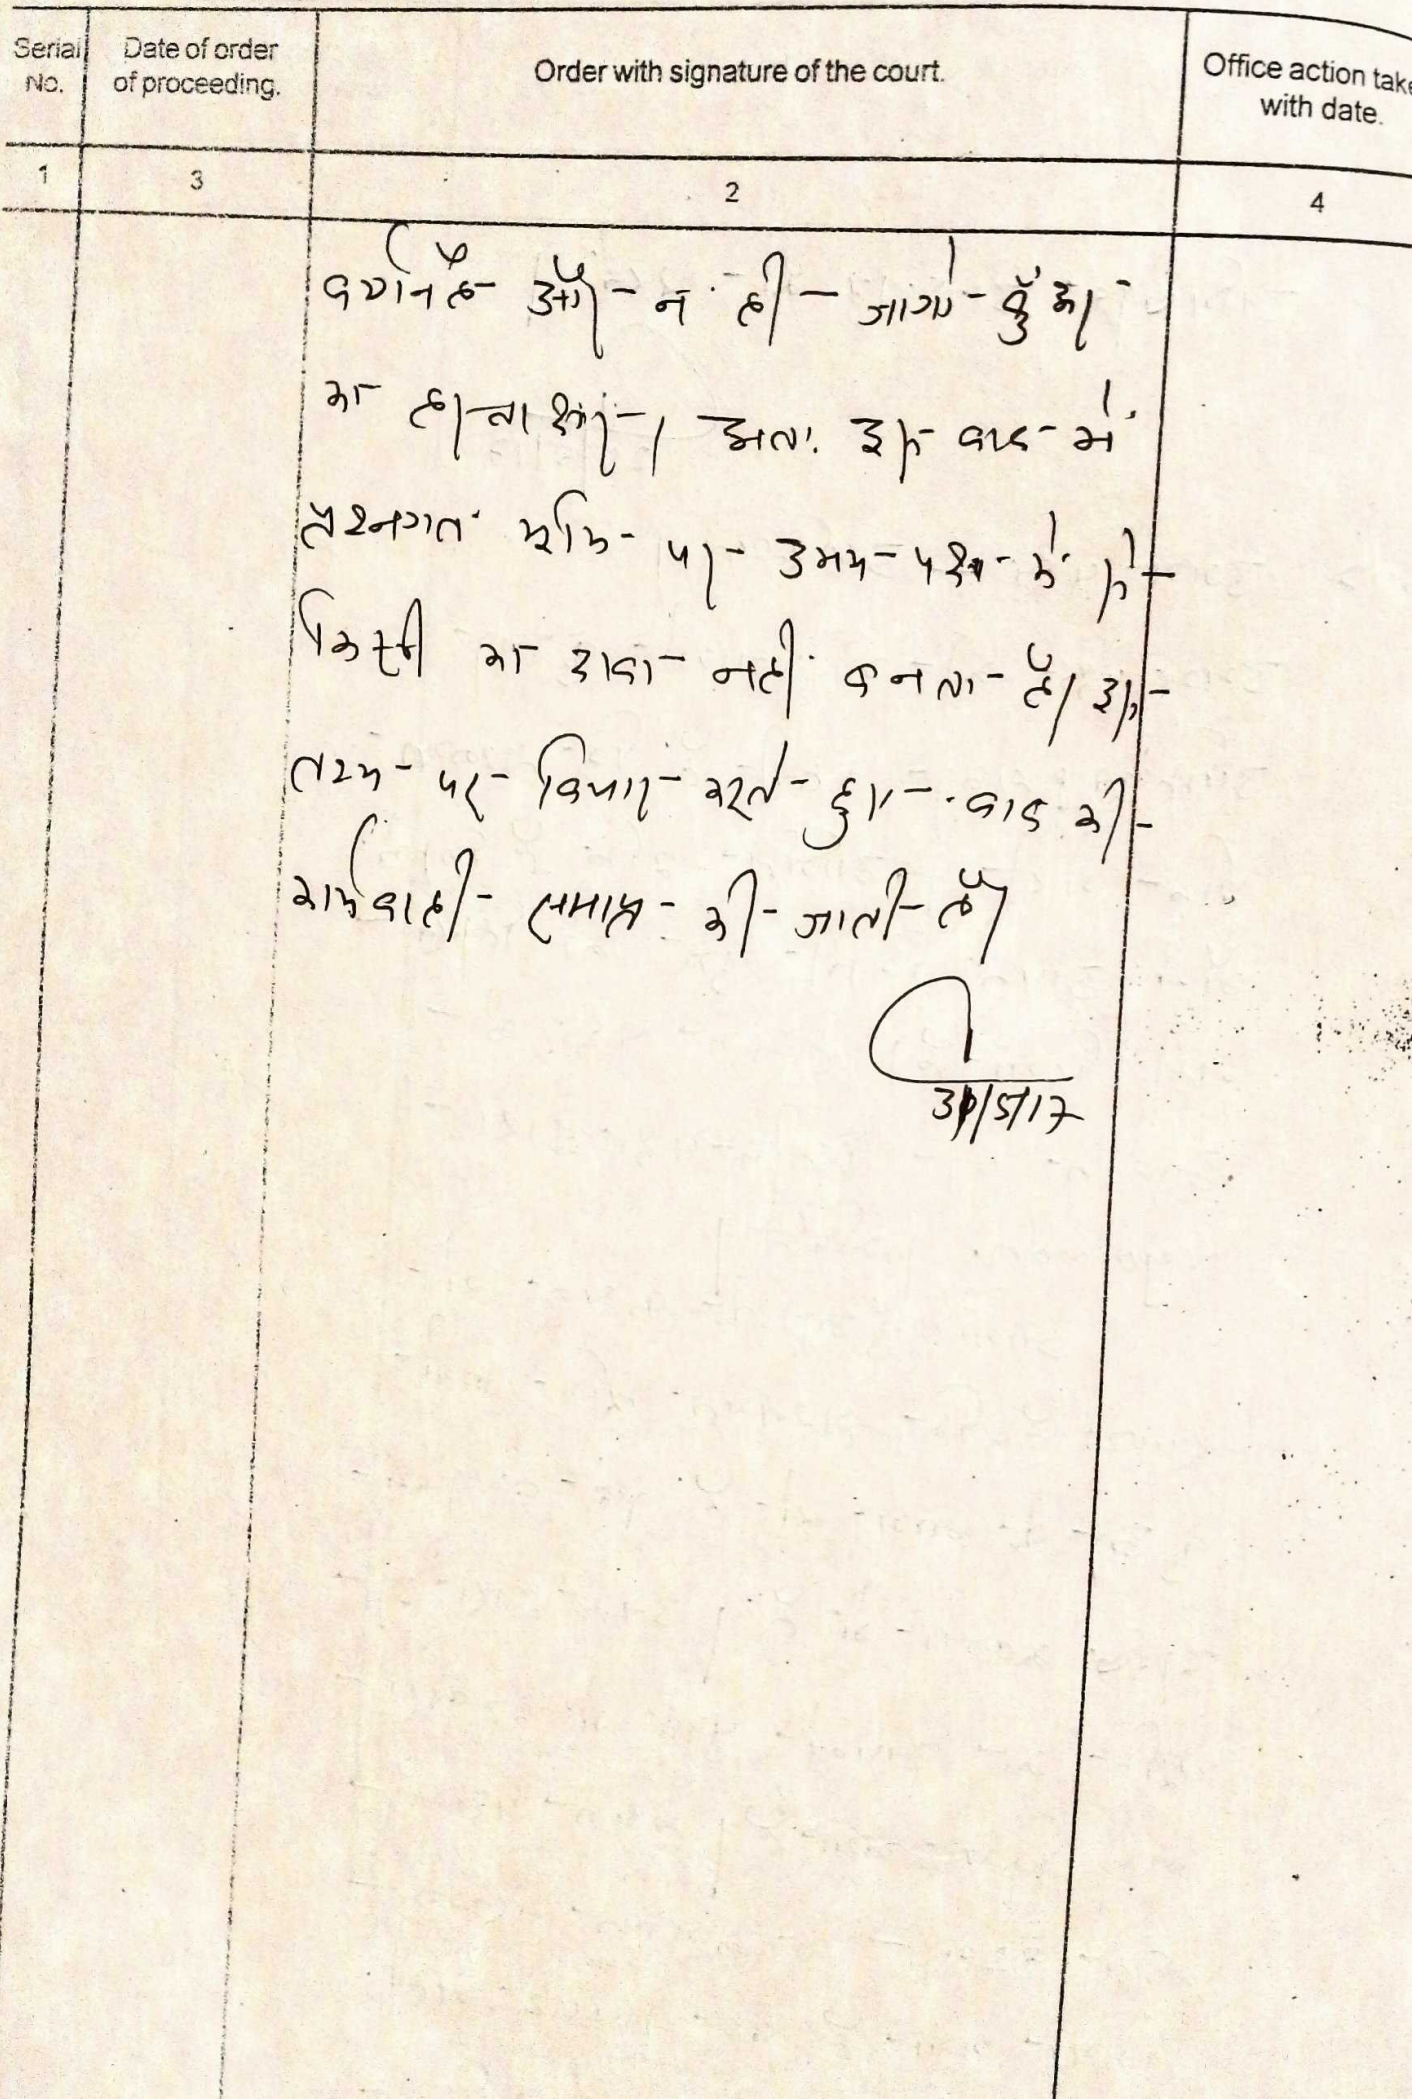 Serial No.
Date of order of proceeding.
Order with signature of the court.
Office action take
with date.
1 3 2 4
वर्णित है और न ही जागो कुँअर
का हस्ताक्षर। अतः इस वाद में
प्रश्नगत भूमि पर उभय पक्ष में से
किसी का दावा नहीं बनता है। इस
तथ्य पर विचार करते हुए वाद की
कार्यवाही समाप्त की जाती है।
5/17